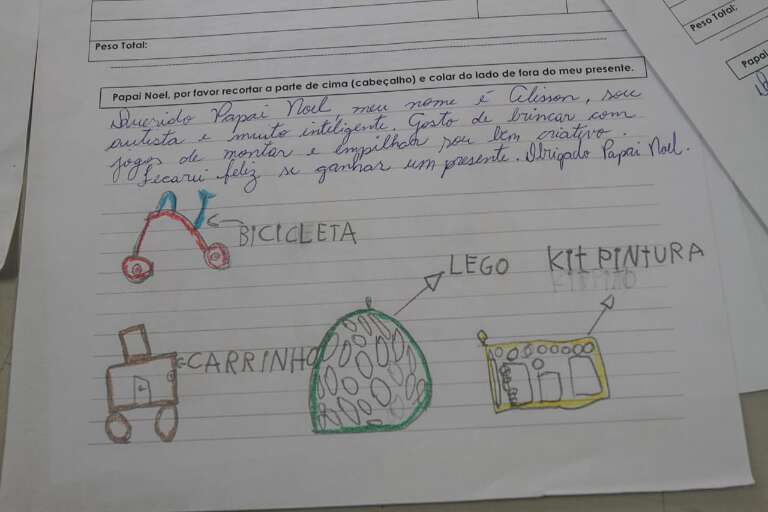 Peso Total:
Peso Total:
Papai
Papai Noel, por favor recortar a parte de cima (cabeçalho) e colar do lado de fora do meu presente.
Querido Papai Noel meu nome é Alisson, sou
autista e muito inteligente. Gosto de brincar com
jogos de montar e empilhar sou bem criativo.
Ficarei feliz se ganhar um presente. Obrigado Papai Noel.
BICICLETA
LEGO
KIT PINTURA
CARRINHO